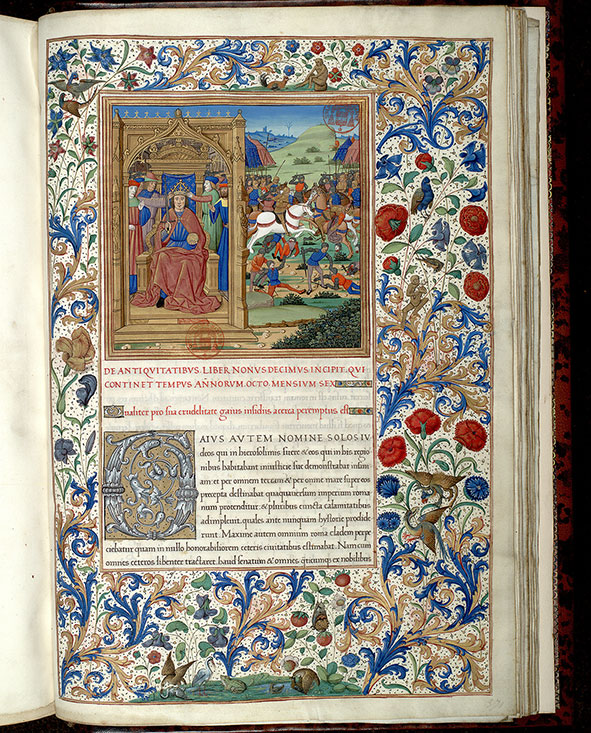 DE ANTIQVITATIBVS LIBER NONVS DECIMVS INCIPIT QVI
CONTINET TEMPVS ANNORVM OCTO MENSIVM SEX
Qualiter pro sua crudelitate gaius insidiis acerca peremptus est
AIVS AVTEM NOMINE SOLOS IV
deos qui in hierosolimis fuere & eos qui in his regio
nibus habitabant iniusticie sue demonstrabat insani
am: et per omnem terram & per omne mare super eos
precepta destinabat quaquauersum imperium roma
num protenditur. & pluribus cuncta calamitatibus
adimpleuit. quales ante nunquam hystorie prodide
runt. Maxime autem omnium roma cladem perpe
ciebatur quam in nullo honorabiliorem ceteris ciuitatibus estimabat. Nam cum
omnes ceteros libenter tractaret. haud senatum & omnes quicunq; ex nobilibus